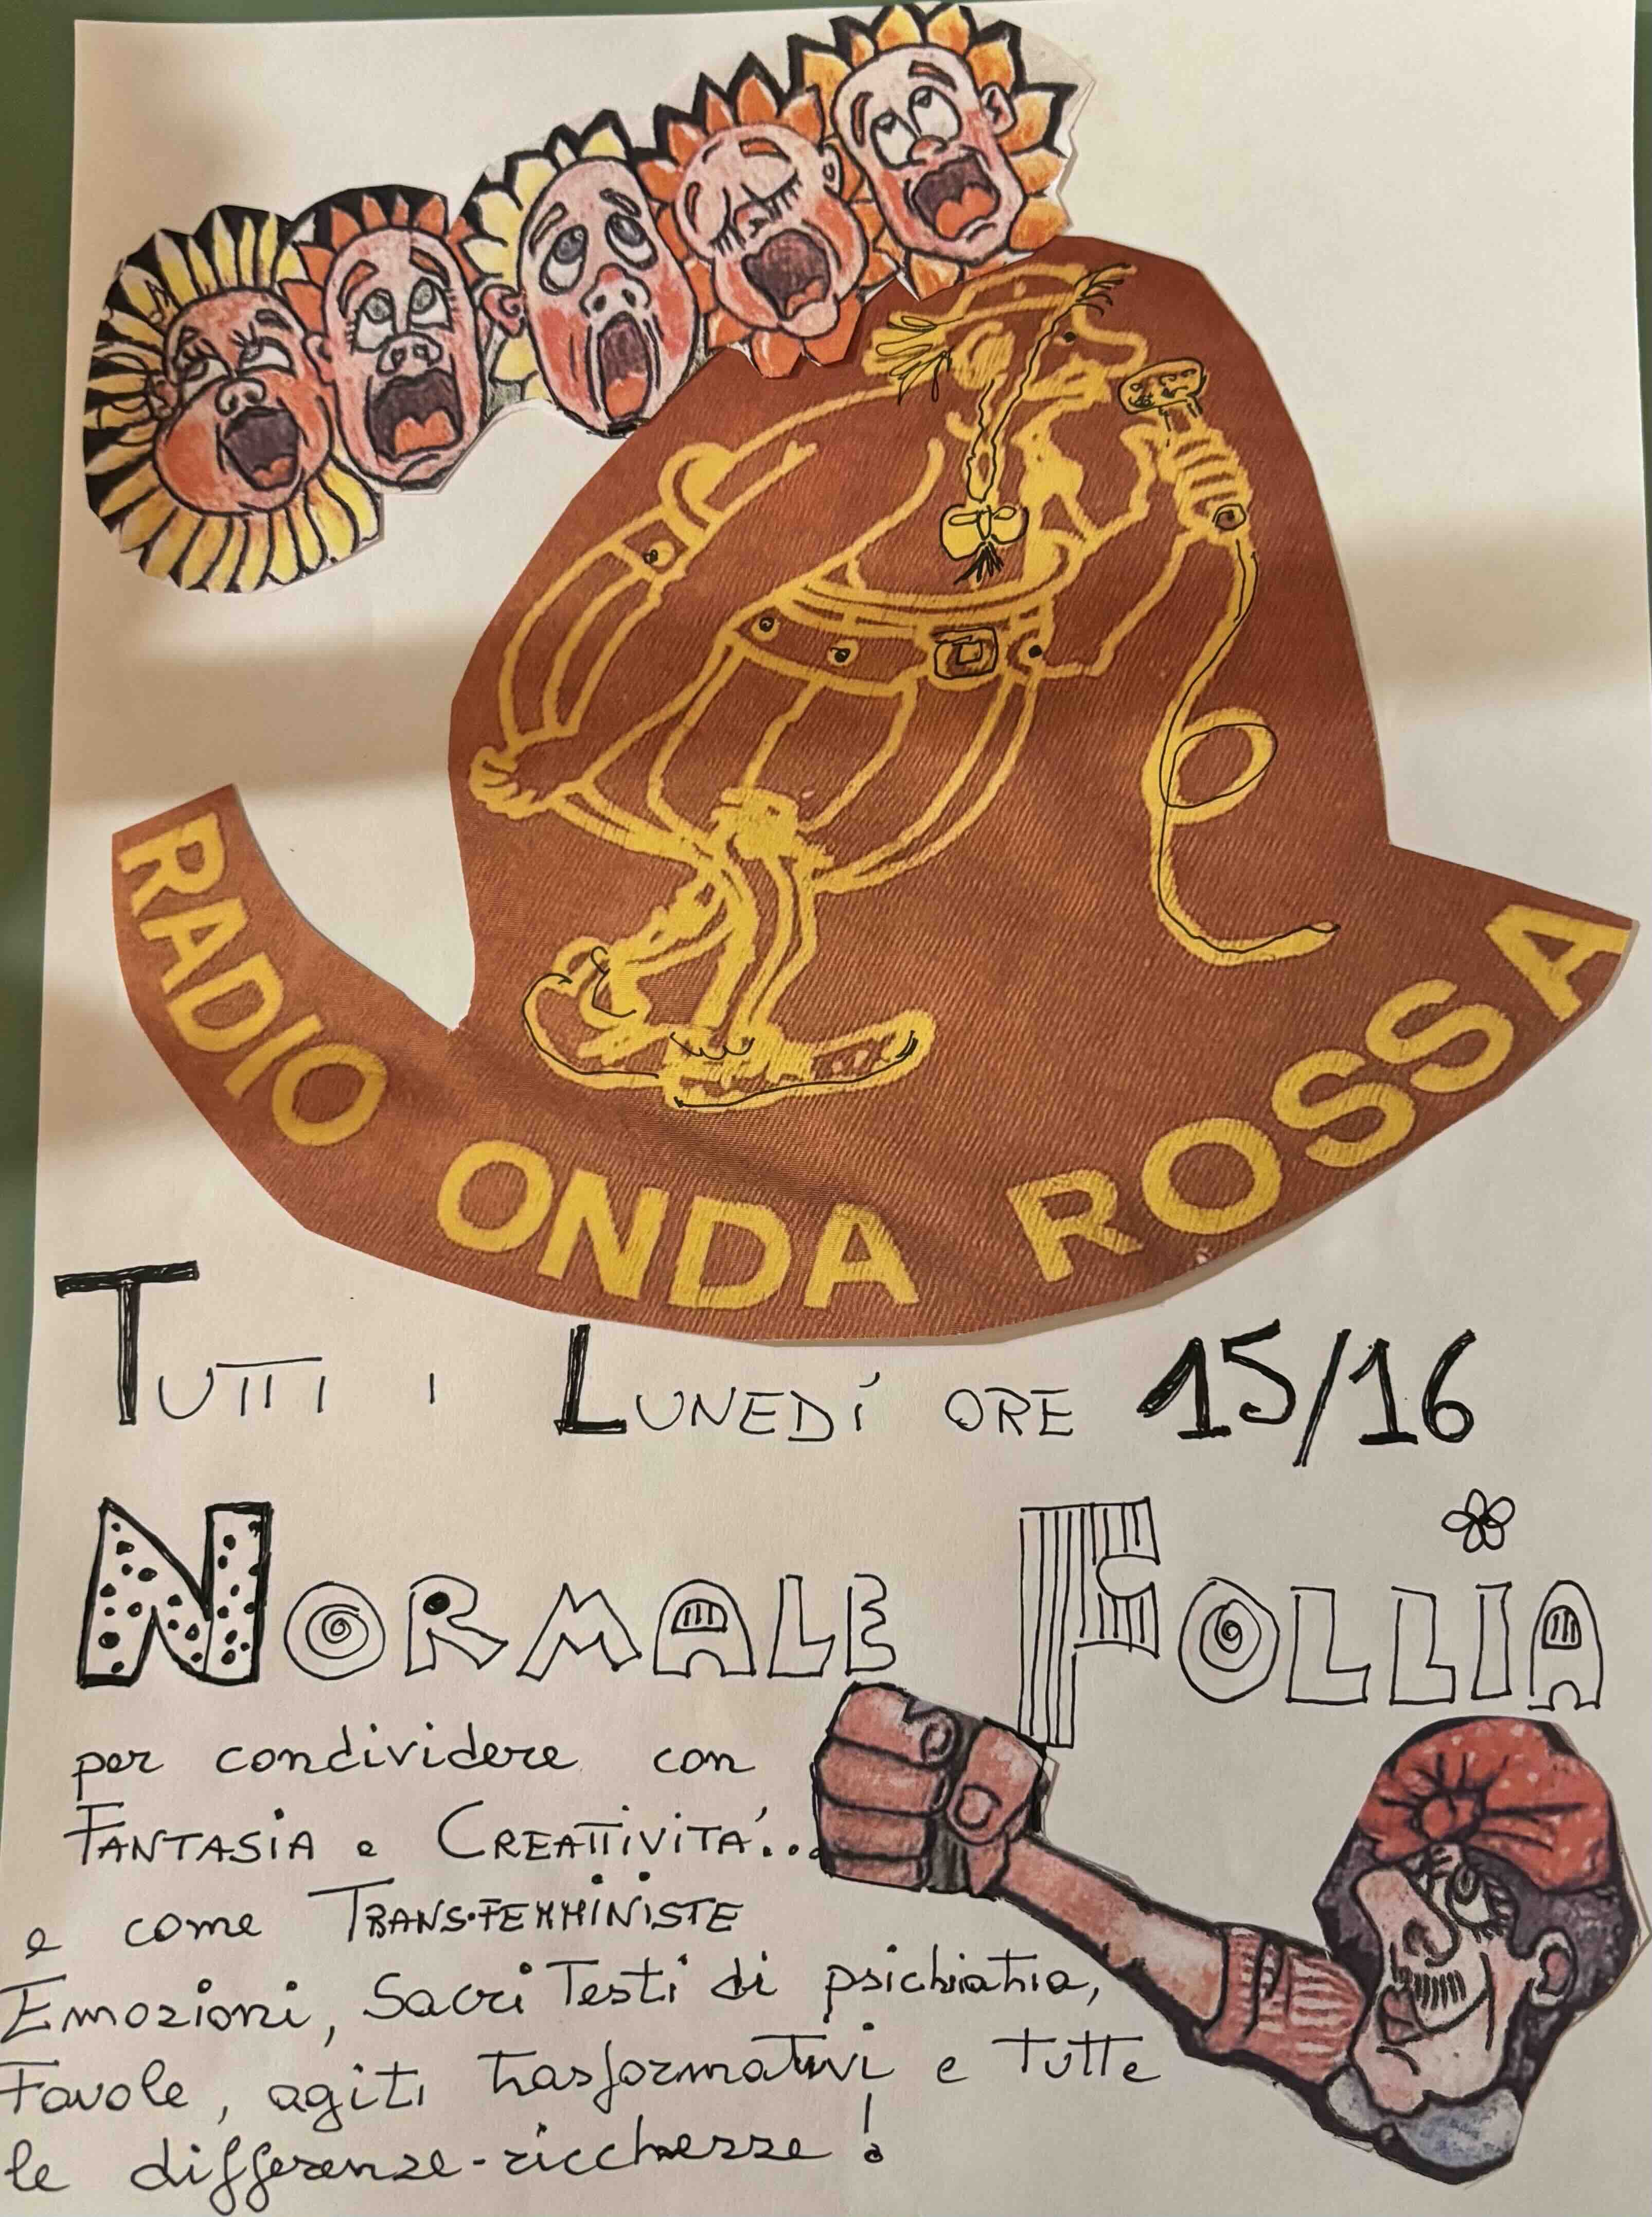 RADIO ONDA ROSSA
TUTTI I LUNEDÍ ORE 15/16
NORMALE FOLLIA
per condividere con
FANTASIA e CREATTIVITA'...
e come TRANS•FEMMINISTE
Emozioni, Sacri Testi di psichiatria,
Favole, agiti trasformativi e tutte
le differenze-ricchezze!